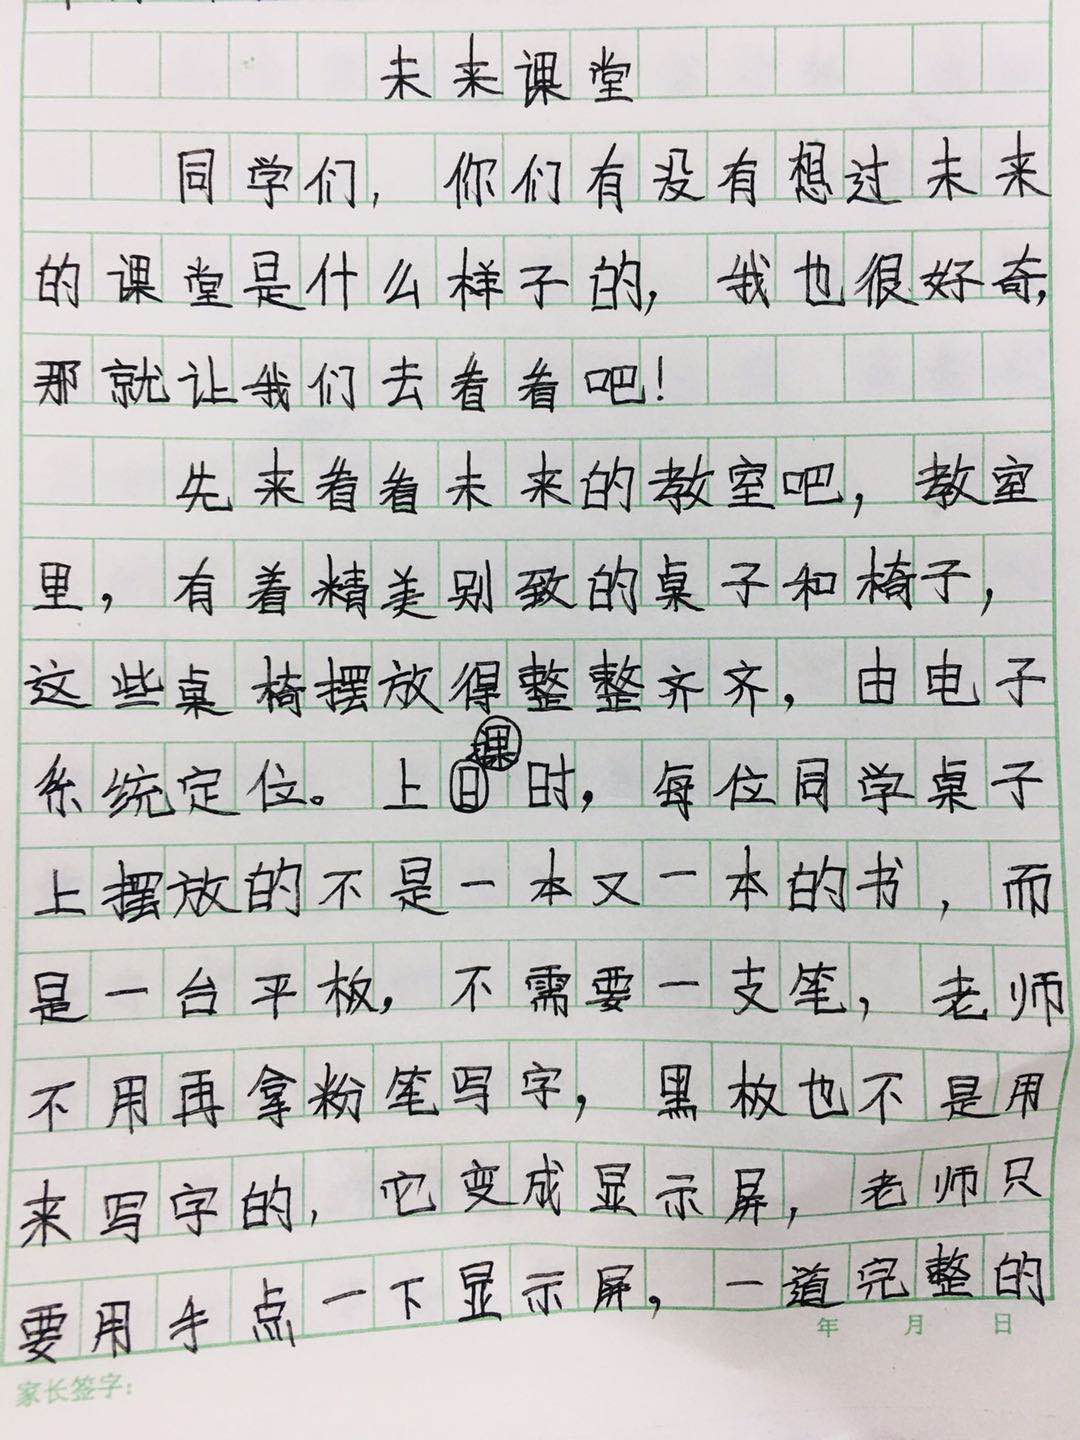 未来课堂
同学们，你们有没有想过未来
的课堂是什么样子的，我也很好奇，
那就让我们去看看吧！
先来看看未来的教室吧，教室
里，有着精美别致的桌子和椅子，
这些桌椅摆放得整整齐齐，由电子
系统定位。上课时，每位同学桌子
上摆放的不是一本又一本的书，而
是一台平板，不需要一支笔，老师
不用再拿粉笔写字，黑板也不是用
来写字的，它变成显示屏，老师只
要用手点一下显示屏，一道完整的
年 月 日
家长签字：